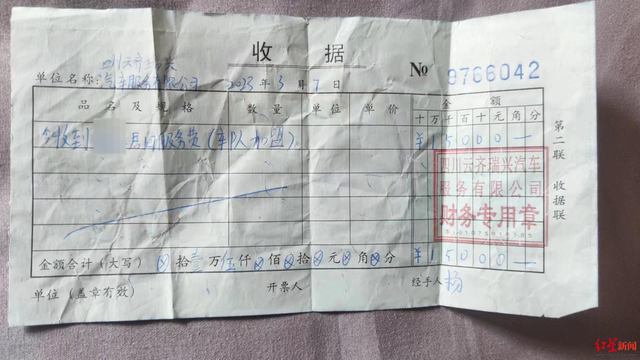 收 据
№ 9766042
单位名称: 汽车服务有限公司 2023 年 3 月 1 日
品名及规格 数量 单位 单价 金额
十 万 千 百 十 元 角 分
今收到 月日服务费(车队加盟) ¥ 1 5 0 0 0 —
四川云齐瑞兴汽车
服务有限公司
财务专用章
金额合计(大写) ⊗ 拾 壹 万 伍 仟 ⊗ 佰 ⊗ 拾 ⊗ 元 ⊗ 角 ⊗ 分 ¥ 1 5 0 0 0 —
单位(盖章有效) 开票人 经手人 杨
第二联 收据联
红星新闻